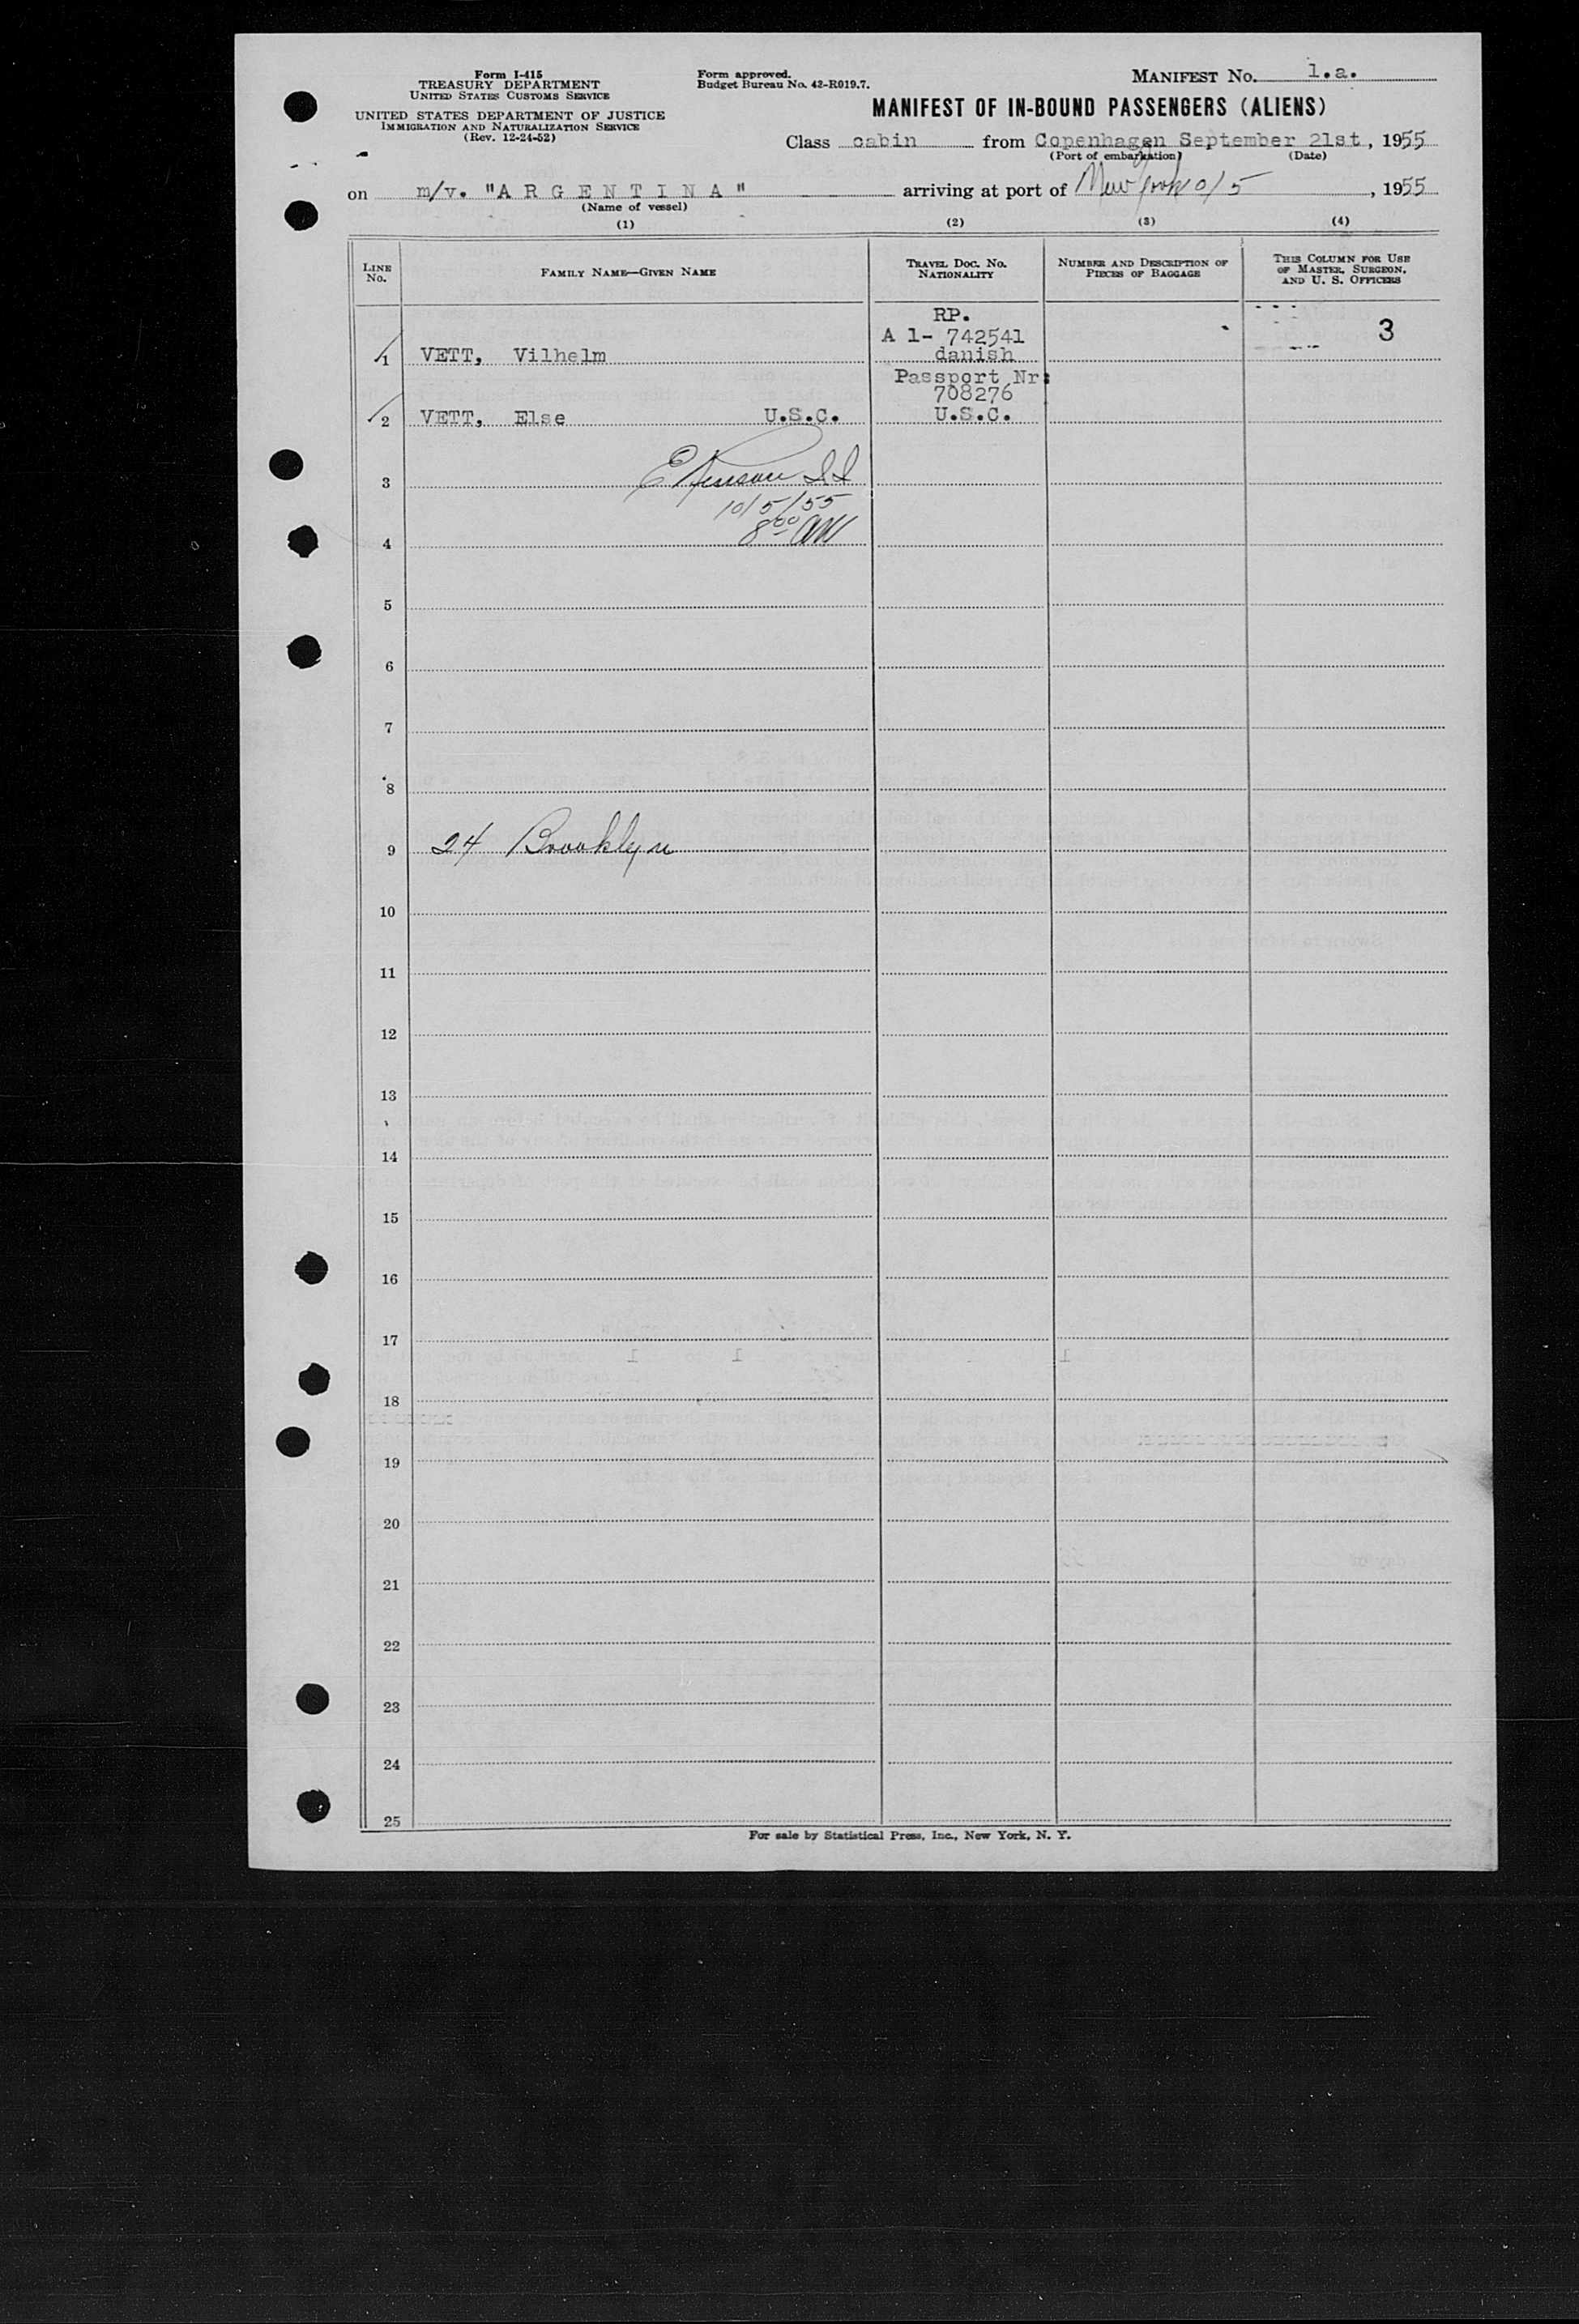 Form I-415
TREASURY DEPARTMENT
UNITED STATES CUSTOMS SERVICE
UNITED STATES DEPARTMENT OF JUSTICE
IMMIGRATION AND NATURALIZATION SERVICE
(Rev. 12-24-52)
Form approved.
Budget Bureau No. 43-R019.7.
MANIFEST No. 1.a.
MANIFEST OF IN-BOUND PASSENGERS (ALIENS)
Class cabin from Copenhagen September 21st, 1955
(Port of embarkation) (Date)
on m/v. "A R G E N T I N A" arriving at port of New York 10/5, 1955
(Name of vessel)
(1) (2) (3) (4)
LINE No. FAMILY NAME—GIVEN NAME TRAVEL DOC. No. NATIONALITY NUMBER AND DESCRIPTION OF PIECES OF BAGGAGE THIS COLUMN FOR USE OF MASTER, SURGEON, AND U. S. OFFICERS
RP.
A 1- 742541 3
1 VETT, Vilhelm danish
Passport Nr:
708276
2 VETT, Else U.S.C. U.S.C.
3
10/5/55
4 8:00 AM
5
6
7
8
9 24 Brooklyn
10
11
12
13
14
15
16
17
18
19
20
21
22
23
24
25
For sale by Statistical Press, Inc., New York, N. Y.